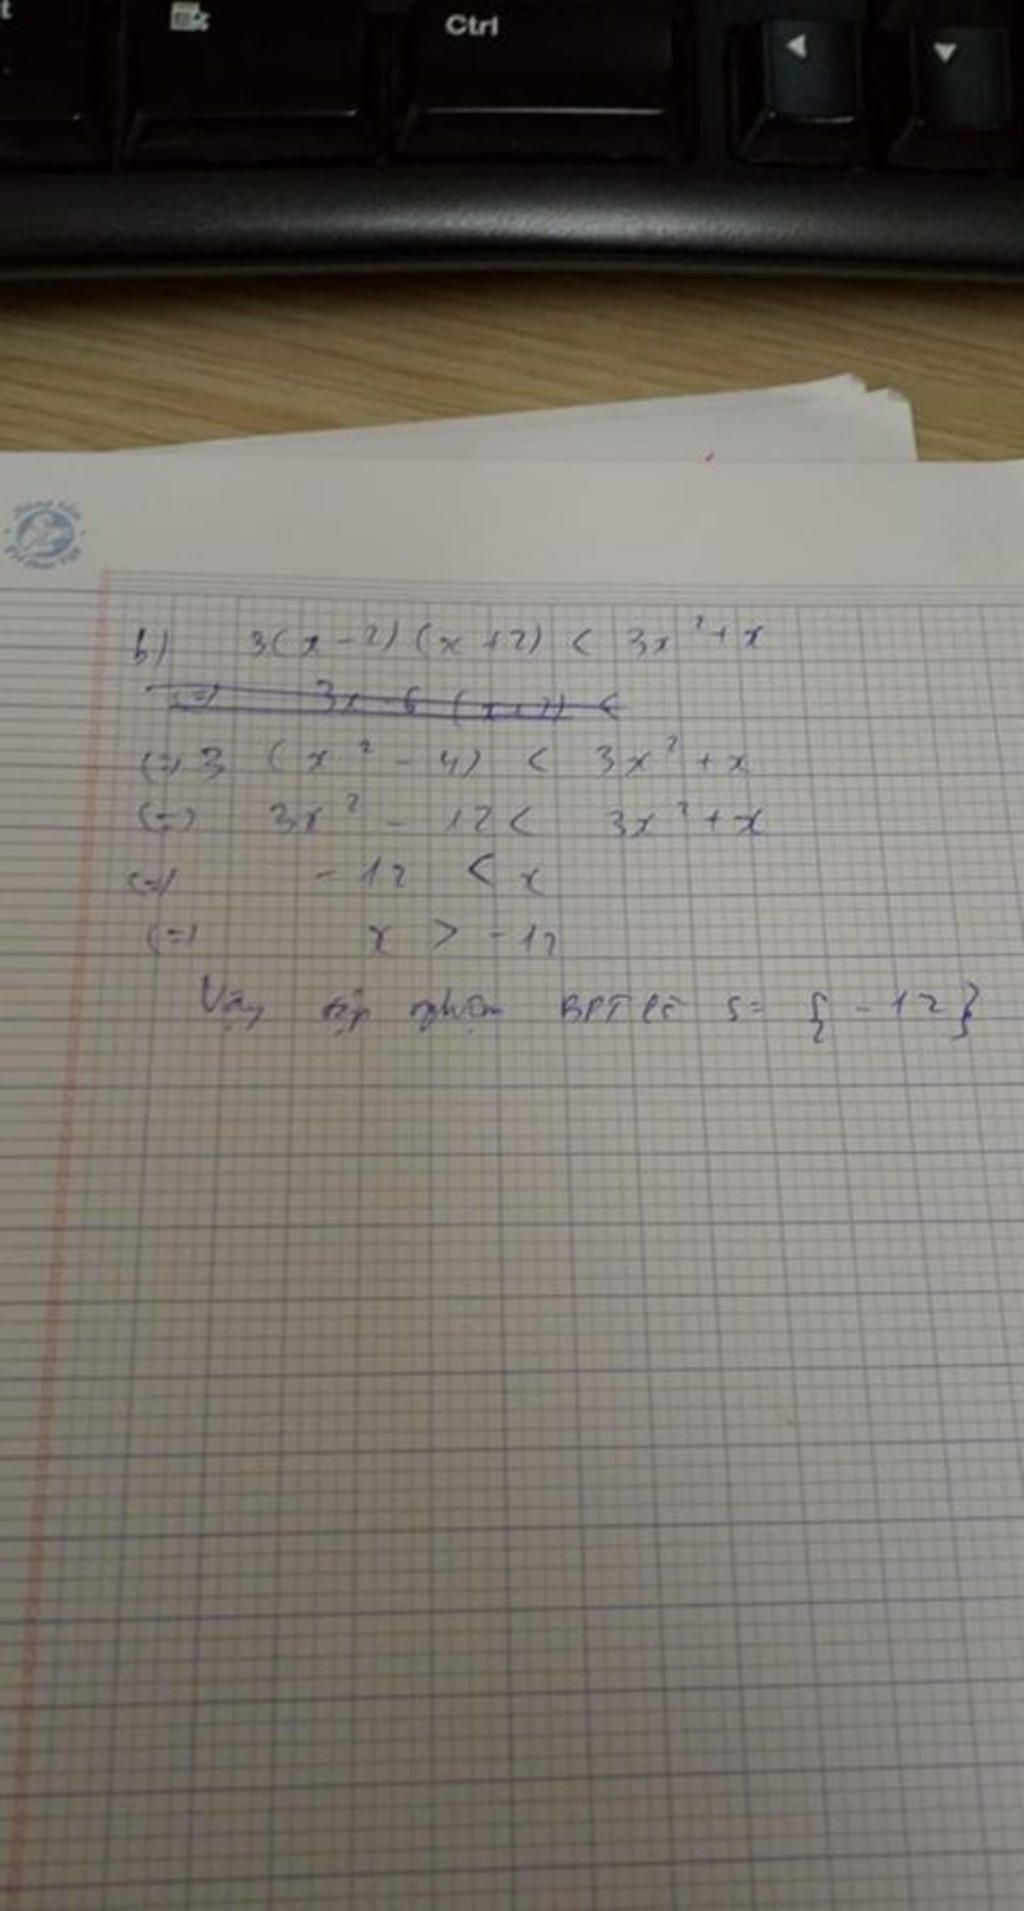 t
Ctrl
b) 3(x-2)(x+2) < 3x²+x
(=) 3x-6 (x+2) <
(=) 3 (x² - 4) < 3x² + x
(=) 3x² - 12 < 3x² + x
(=) - 12 < x
(=) x > -12
Vậy tập nghiệm BPT là S = {-12}